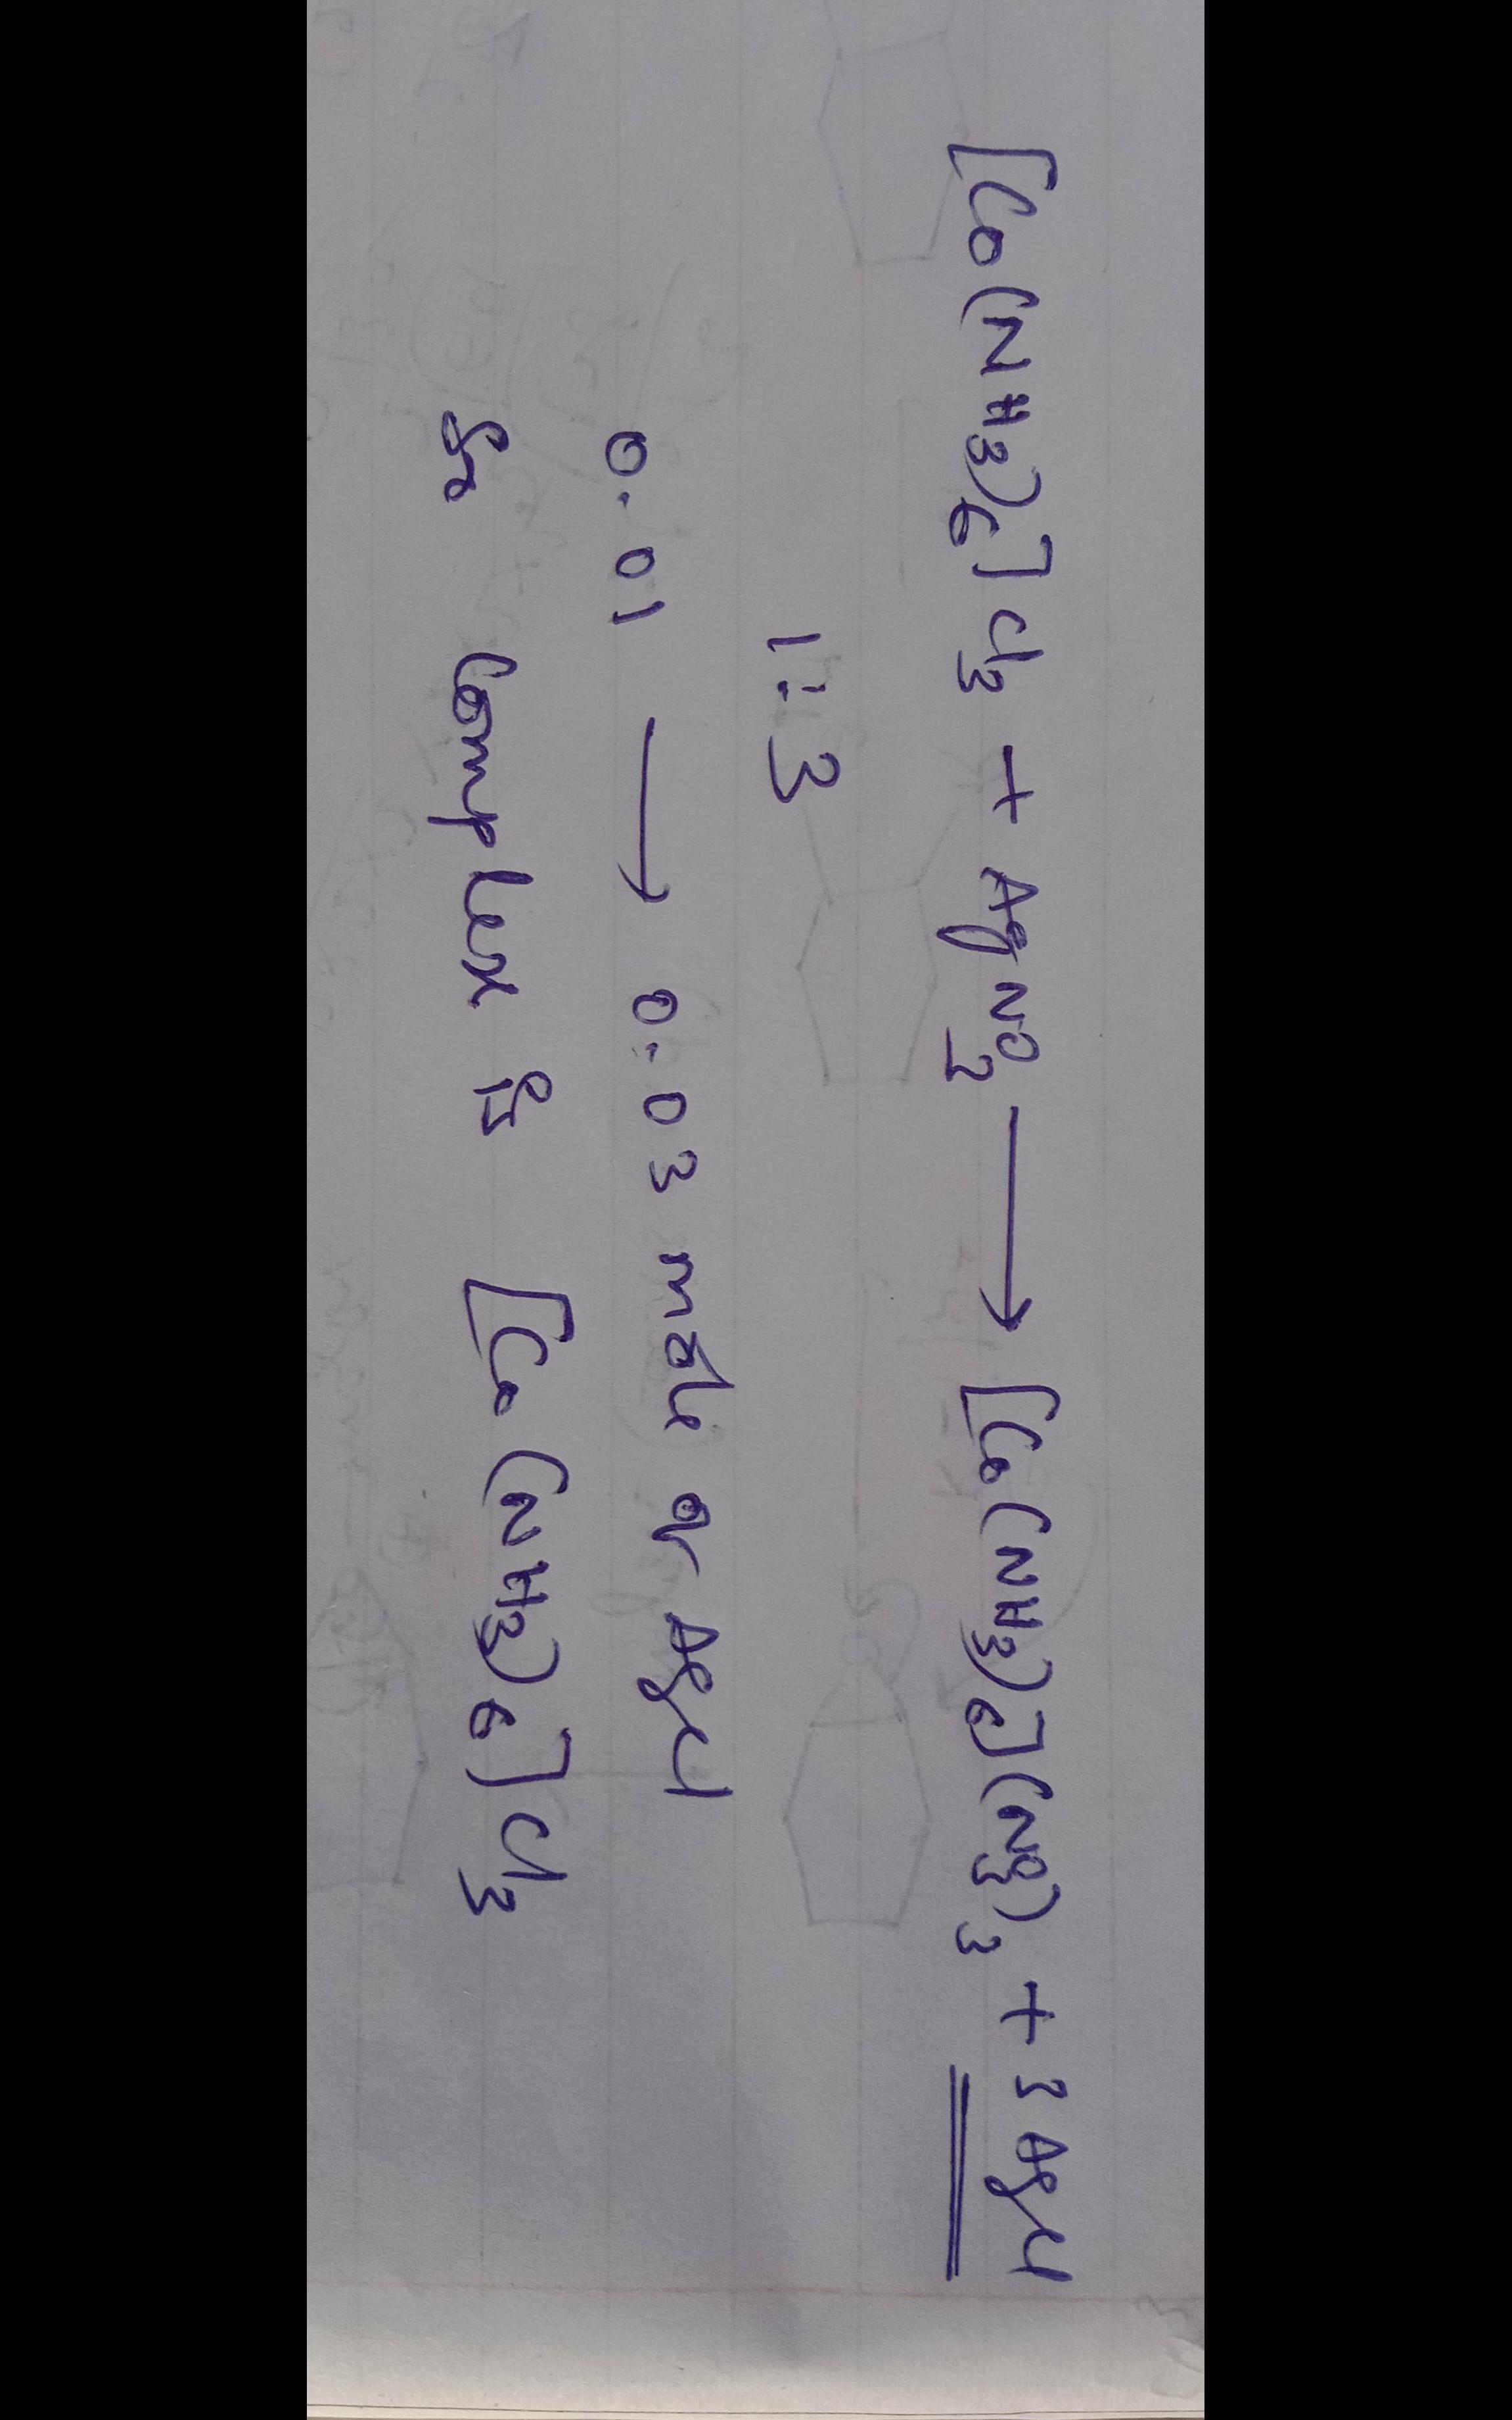 [Co(NH3)6]Cl3 + AgNO2 → [Co(NH3)6](NO3)3 + 3 AgCl
1:3
0.01 → 0.03 mole or AgCl
So complex is [Co(NH3)6]Cl3